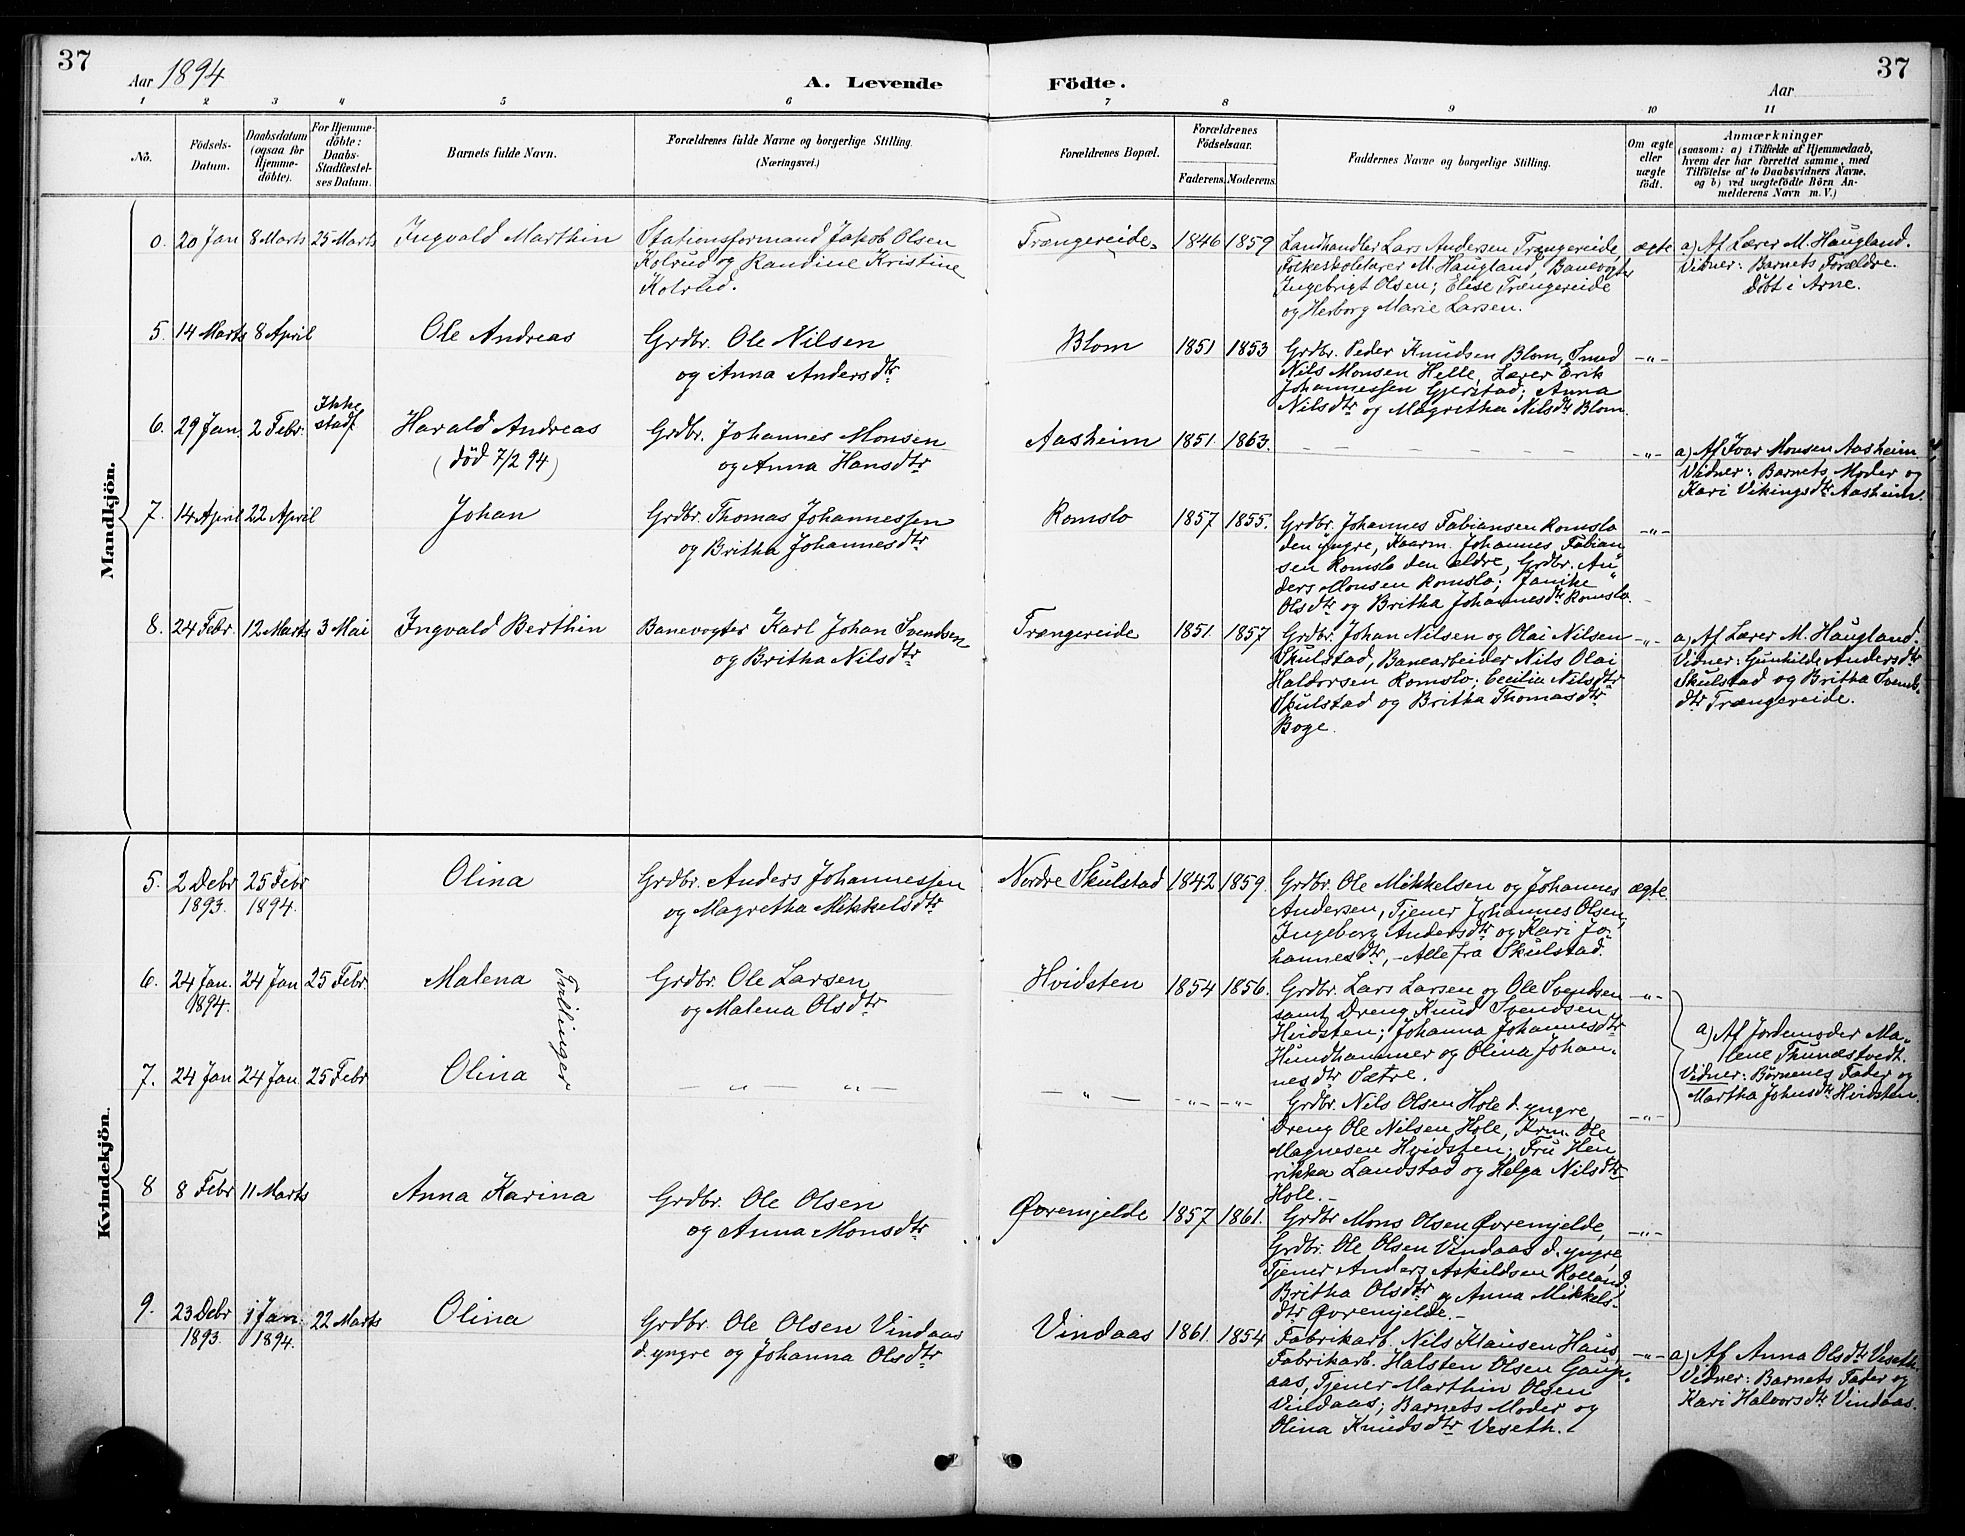 37
Aar 1894
A. Levende Födte.
Aar
37
1 2 3 4 5 6 7 8 9 10 11
No.
Födsels-
Datum.
Daabsdatum
(ogsaa for
Hjemme-
döbte).
For Hjemme-
döbte:
Daabs-
Stadfæstel-
ses Datum.
Barnets fulde Navn.
Forældrenes fulde Navne og borgerlige Stilling.
(Næringsvei.)
Forældrenes Bopæl.
Forældrenes
Födselsaar.
Faderens. Moderens.
Faddernes Navne og borgerlige Stilling.
Om ægte
eller
uægte
födt.
Anmærkninger
(saasom: a) i Tilfælde af Hjemmedaab,
hvem der har forrettet samme, med
Tilföielse af to Daabsvidners Navne.
og b) ved uægtefödte Börn An-
melderens Navn m. V.)
Mandkjön.
0. 20 Jan 8 Marts 25 Marts Ingvald Marthin
Stationsformand Jakob Olsen
Kolrud og Randine Kristine
Kolrud.
Trængereide 1846 1859
Landhandler Lars Andersen Trængereide,
Folkeskolelærer M. Haugland, Banevogter
Ingebrigt Olsen; Elise Trængereide
og Herborg Marie Larsen.
ægte
a) Af Lærer M. Haugland.
Vidner: Barnets Forældre.
Döbt i Arne.
5. 14 Marts 8 April Ole Andreas
Grdbr. Ole Nilsen
og Anna Andersdtr
Blom 1851 1853
Grdbr. Peder Knudsen Blom, Smed
Nils Monsen Helle, Lærer Erik
Johannessen Gjerstad; Anna
Nilsdtr og Magretha Nilsdtr Blom.
-"-
6. 29 Jan. 2 Febr. Ikke
stadf.
Harald Andreas
(död 7/2 94)
Grdbr. Johannes Monsen
og Anna Hansdtr
Aasheim 1851. 1863.
- - - - - - -
-"-
a) Af Ivar Monsen Aasheim
Vidner: Barnets Moder og
Kari Vikingsdtr Aasheim.
7. 14 April 22 April Johan
Grdbr. Thomas Johannessen
og Britha Johannesdtr
Romslo 1857 1855.
Grdbr. Johannes Fabiansen Romslo
den yngre, Kaarm. Johannes Fabian
sen Romslo den ældre, Grdbr. An
ders Monsen Romslo; Janike
Olsdtr og Britha Johannesdtr Romslo.
-"-
8. 24 Febr. 12 Marts 3 Mai Ingvald Berthin
Banevogter Karl Johan Svendsen
og Britha Nilsdtr
Trængereide 1851. 1857
Grdbr. Johan Nilsen og Olai Nilsen
Skulstad, Banearbeider Nils Olai
Haldorsen Romslo; Cecilia Nilsdtr
Skulstad og Britha Thomasdtr
Boge.
-"-
a) Af Lærer M. Haugland.
Vidner: Gunhilde Andersdtr
Skulstad og Britha Svends-
dtr Trængereide.
Kvindekjön.
5. 2 Debr 1893. 25 Febr 1894. Olina
Grdbr. Anders Johannessen
og Magretha Mikkelsdtr
Nordre Skulstad 1842 1859.
Grdbr. Ole Mikkelsen og Johannes
Andersen, Tjener Johannes Olsen,
Ingeborg Andersdtr og Kari Jo-
hannesdtr, - Alle fra Skulstad.
ægte.
6. 24 Jan. 1894. 24 Jan 25 Febr. Malena
Tvillinger
Grdbr. Ole Larsen
og Malena Olsdtr
Hvidsten 1854 1856.
Grdbr. Lars Larsen og Ole Svendsen
samt Dreng Knud Svendsen
Hvidsten; Johanna Johannesdtr
Hundhammer og Olina Johan-
nesdtr Sætre.
-"-
a) Af Jordemoder Ma-
lene Thunæstvedt.
Vidner: Börnenes Fader og
Martha Johnsdtr Hvidsten.
7. 24 Jan 24 Jan. 25 Febr Olina
- " - " -
- " - -"- -"-
Grdbr. Nils Olsen Hole d. yngre,
Dreng Ole Nilsen Hole, Krm. Ole
Magnesen Hvidsten; Fru Hen
rikka Landstad og Helga Nilsdtr
Hole. -
-"-
8 8 Febr 11 Marts Anna Karina
Grdbr. Ole Olsen
og Anna Monsdtr
Øvremjelde 1857 1861.
Grdbr Mons Olsen Øvremjelde,
Grdbr. Ole Olsen Vindaas d. yngre,
Tjener Anders Askildsen Rolland;
Britha Olsdtr og Anna Mikkels-
dtr Øvremjelde. -
-"-
9. 23 Debr 1893. 1 Jan. 1894. 22 Marts Olina
Grdbr. Ole Olsen Vindaas
d. yngre og Johanna Olsdtr
Vindaas 1861. 1854
Fabrikarb. Nils Klausen Haus,
Fabrikarb. Halsten Olsen Gaup-
aas, Tjener Marthin Olsen
Vindaas; Barnets Moder og
Olina Knudsdtr Veseth.
-"-
a) Af Anna Olsdtr Veseth.
Vidner: Barnets Fader og
Kari Halvorsdtr Vindaas.